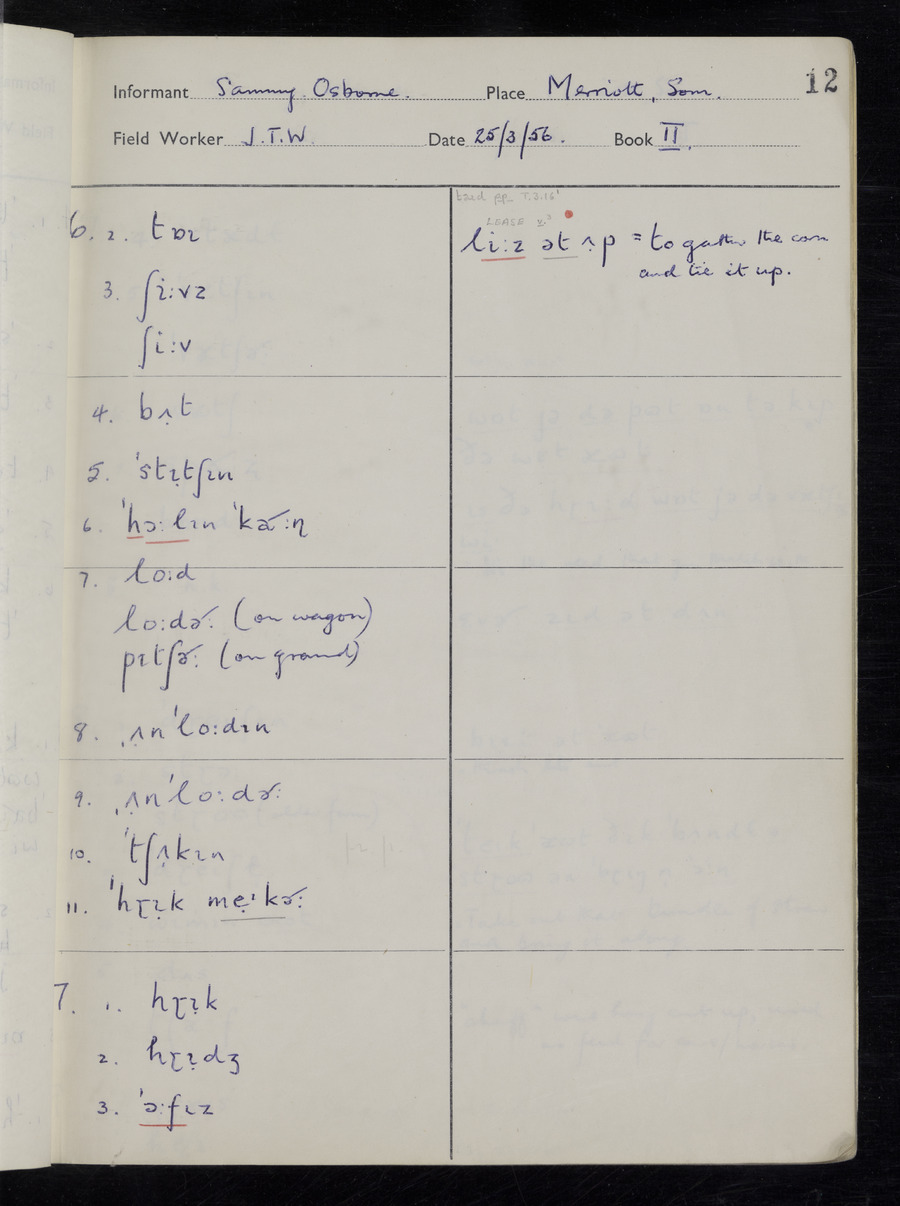 Informant Sammy Osborne. Place Merriott, Som. 12
Field Worker J.T.W. Date 25/3/56. Book II.
6. 2. tɒɪ
3. ʃi:vz
ʃi:v
4. bʌ̣t
5. ˈstɪ̣tʃɪn
6. ˈhɔ:lɪn ˈkɚ:ɳ
7. lo:d
lo:dɚ: (on wagon)
pɪtʃɚ: (on ground)
8. ˌʌ̣nˈlo:dɪn
9. ˌʌ̣nˈlo:dɚ:
10. ˈtʃʌ̣kɪn
11. ˈhɽɪ̣k mẹ:ɪkɚ:
7. 1. hɽɪ̣k
2. hɽɪ̣dʒ
3. ˈɔ:fɪz
LEASE v.³
li:z ət ʌ̣p = to gather the corn
and tie it up.